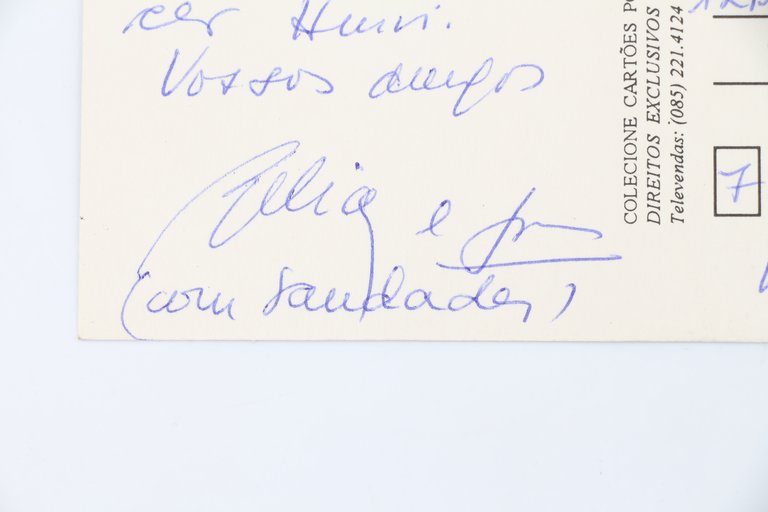 cer Henri.
Vossos amigos
Célia e
(com saudades)
COLECIONE CARTÕES
DIREITOS EXCLUSIVOS
Televendas: (085) 221.4124
7